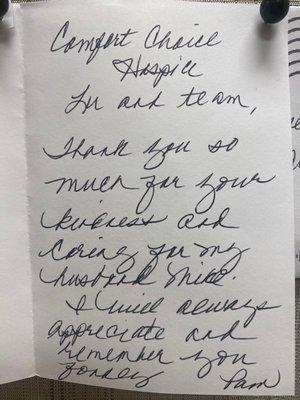 Comfort Choice
Hospice
and team,
Thank you so
much for your
kindness and
caring for my
husband Mike.
I will always
appreciate and
remember you
fondly
Pam